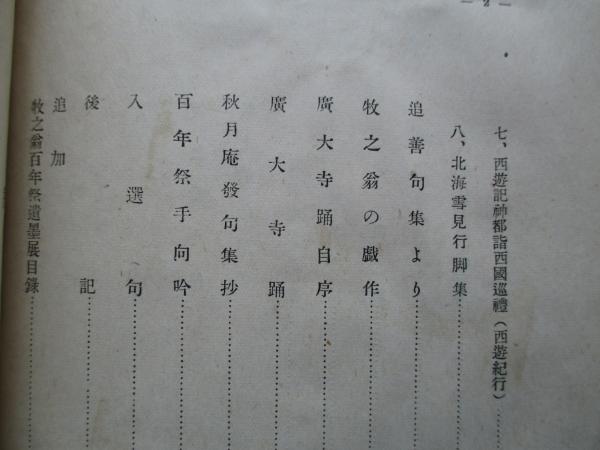 — 2 —
七、西遊記神都詣西國巡禮(西遊紀行)…………
八、北海雪見行脚集…………
追善句集より…………
牧之翁の戯作…………
廣大寺踊自序…………
廣大寺踊…………
秋月庵發句集抄…………
百年祭手向吟…………
入選句…………
後記…………
追加
牧之翁百年祭遺墨展目錄…………